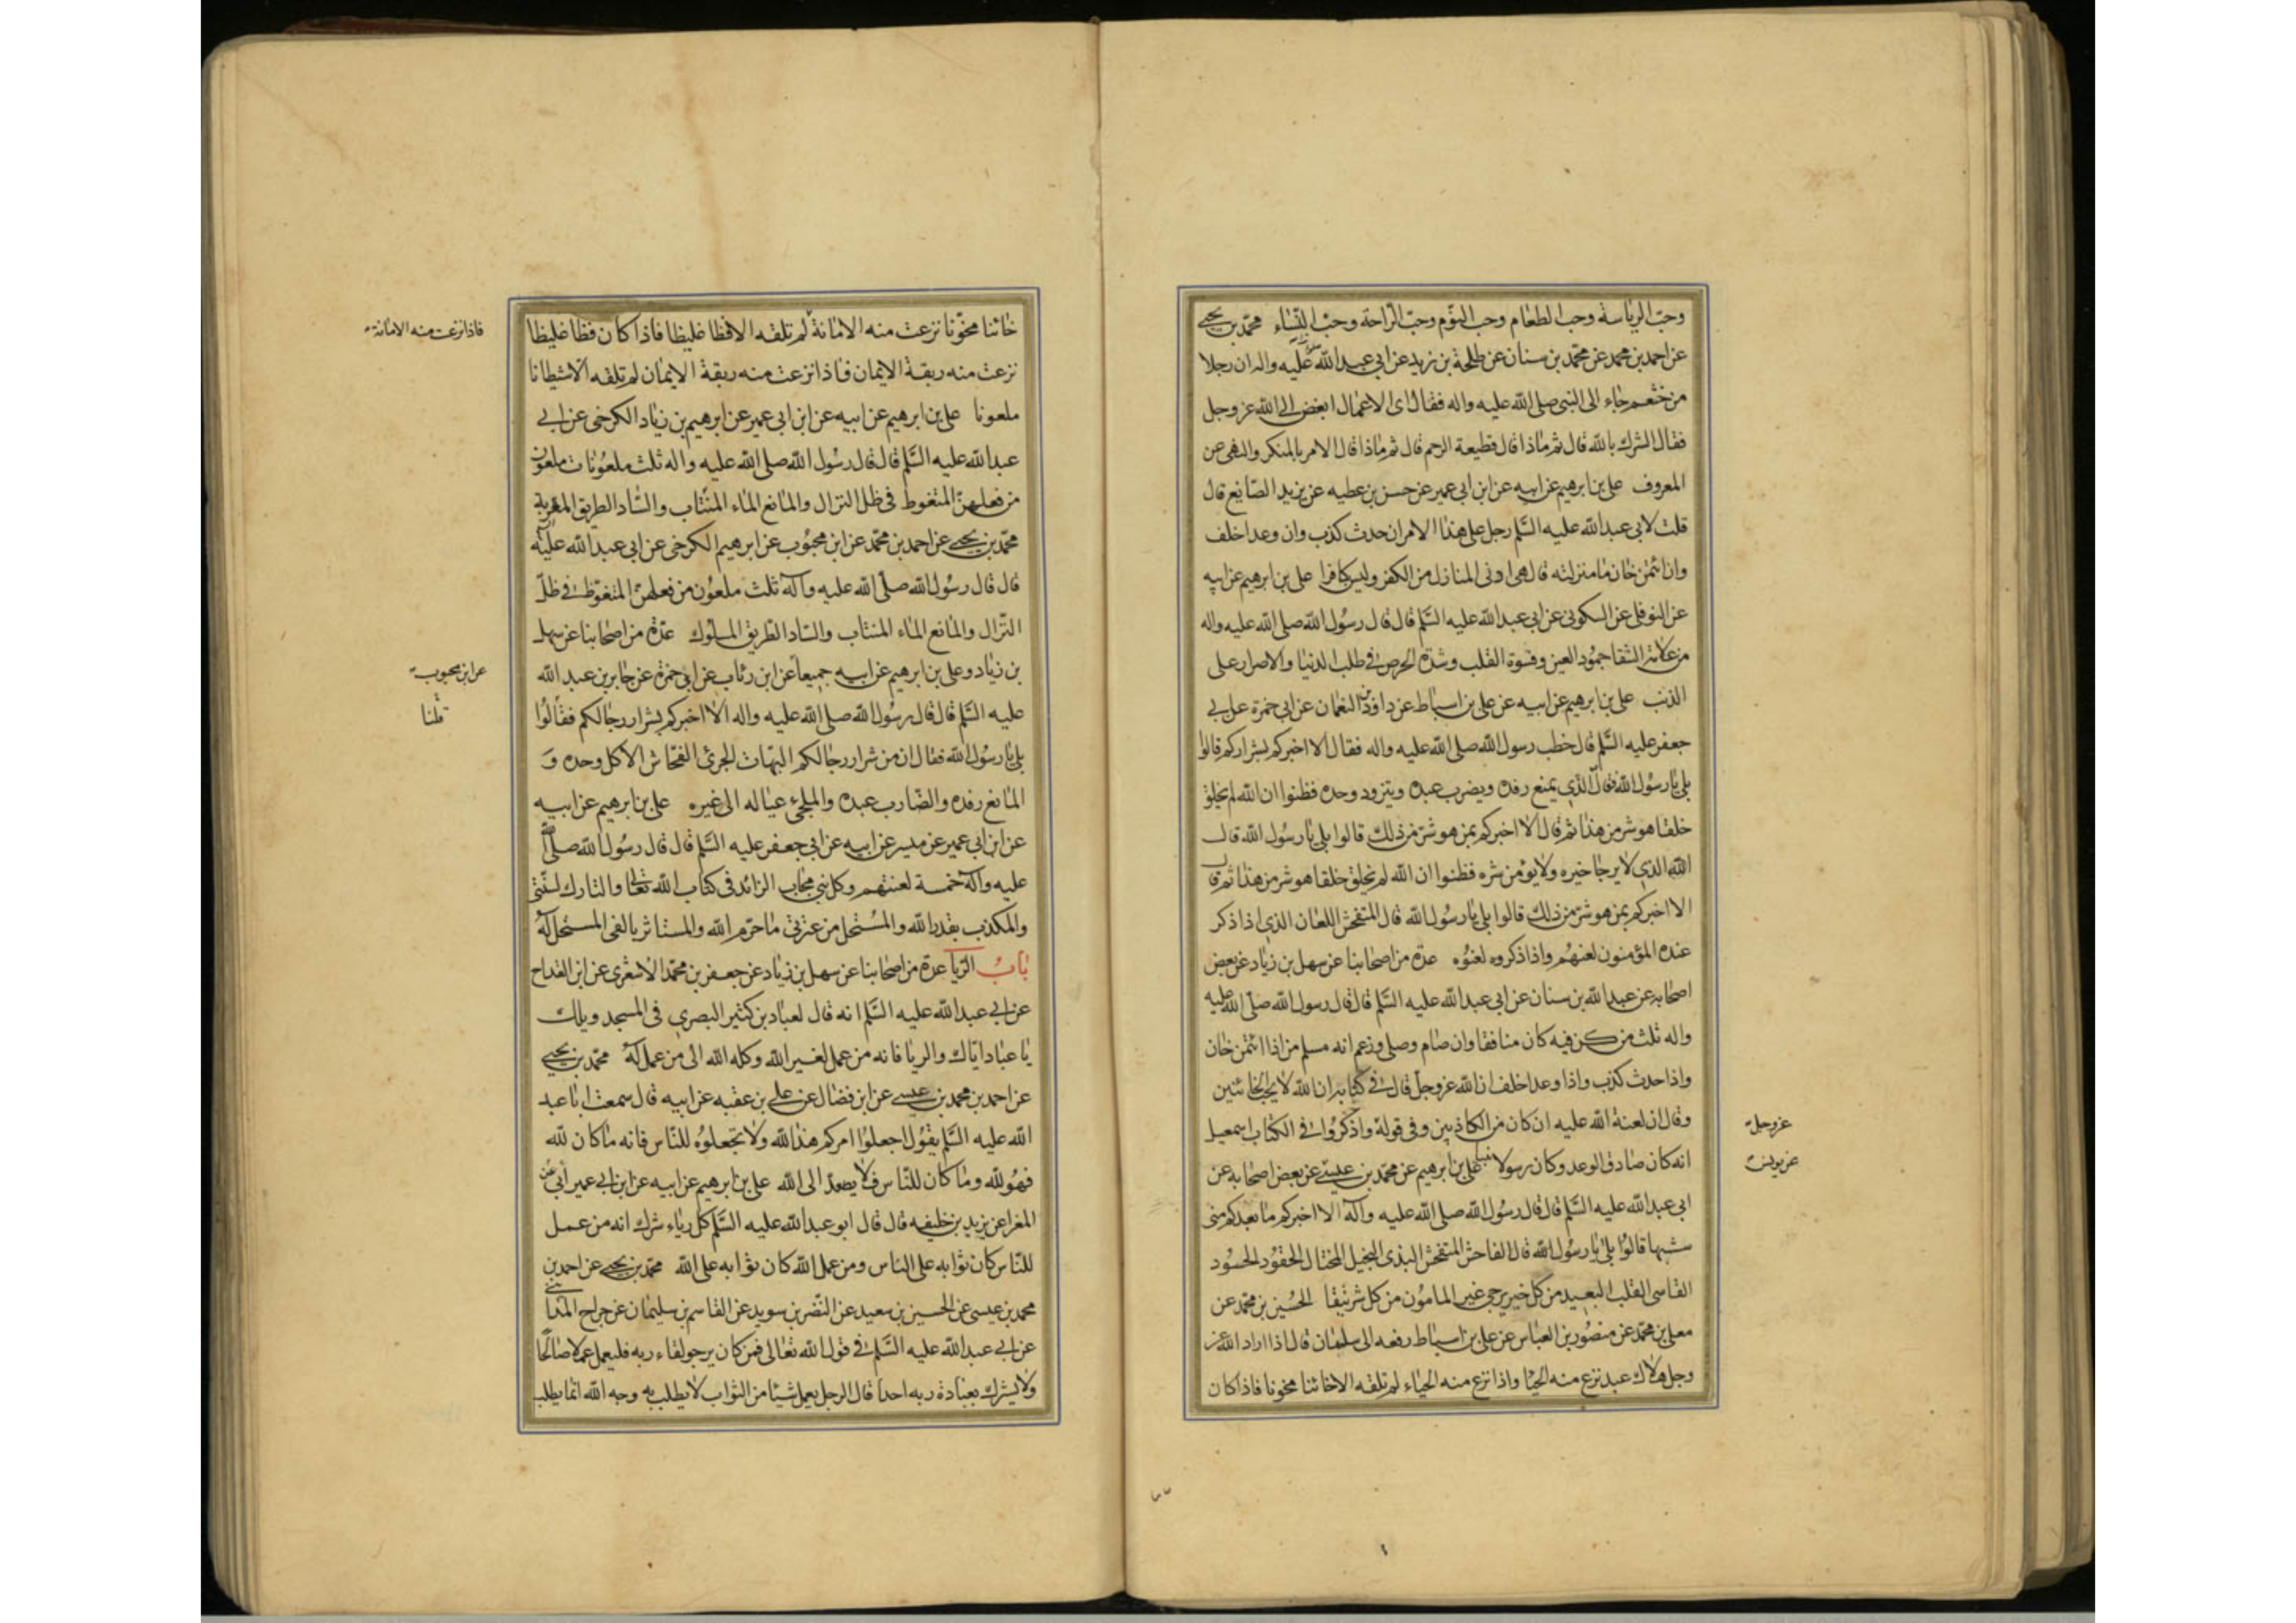 وحبّ الرياسة وحب الطعام وحب النوّم وحبّ الراحة وحبّ النّساء محمّد بن يحيى
عن احمد بن محمد عن محمّد بن سنان عن طلحة بن زيد عن ابي عبد الله عليه واله ان رجلا
من خثعم جاء الى النبى صلى الله عليه واله فقال اى الاعمال ابغض الى الله عز وجل
فقال الشرك بالله قال ثم ماذا قال قطيعة الرحم قال ثم ماذا قال الامر بالمنكر والنهى عن
المعروف على بن ابرهيم عن ابيه عن ابن ابى عمير عن حسن بن عطيه عن يزيد الصّايغ قال
قلت لابى عبد الله عليه السّلم رجل على هذا الامر ان حدث كذب وان وعد اخلف
وان ائتمن خان ما منزلته قال هى ادنى المنازل من الكفر وليس بكافرا على بن ابرهيم عن ابيه
عن النوفلى عن السكونى عن ابى عبد الله عليه السّلم قال قال رسول الله صلى الله عليه واله
من علامة الشقا جمود العين وقسوة القلب وشدّة الحرص فى طلب الدنيا والاصرار على
الذنب على بن ابرهيم عن ابيه عن على بن اسباط عن داود بن النعمان عن ابى حمزة عن ابى
جعفر عليه السّلم قال خطب رسول الله صلى الله عليه واله فقال الا اخبركم بشراركم قالوا
بلى يا رسول الله فقال الّذى يمنع رفده ويضرب عبده ويتزود وحده فظنوا ان الله لم يخلق
خلقا هو شر من هذا ثم قال الا اخبركم بمن هو شرّ من ذلك قالوا بلى يا رسول الله قال
الله الذى لا يرجا خيره ولا يؤمن شره فظنوا ان الله لم يخلق خلقا هو شر من هذا ثم قال
الا اخبركم بمن هو شرّ من ذلك قالوا بلى يا رسول الله قال المتفحش اللعان الذى اذا ذكر
عنده المؤمنون لعنهم واذا ذكروه لعنوه عدة من اصحابنا عن سهل بن زياد عن بعض
اصحابه عن عبد الله بن سنان عن ابى عبد الله عليه السّلم قال قال رسول الله صلّى الله عليه
واله ثلث من كن فيه كان منافقا وان صام وصلى وزعم انه مسلم من اذا ائتمن خان
واذا حدث كذب واذا وعد اخلف ان الله عز وجل قال فى كتابه ان الله لا يحب الخائنين
وقال ان لعنة الله عليه ان كان من الكاذبين وفى قوله واذكروا فى الكتاب اسمعيل
عز وجل
انه كان صادق الوعد وكان رسولا نبيا على بن ابرهيم عن محمّد بن عيسى عن بعض اصحابه عن
عن يونس
ابى عبد الله عليه السّلم قال قال رسول الله صلى الله عليه وآله الا اخبركم ما بعدكم منى
شبها قالوا بلى يا رسول الله قال الفاحش المتفحش البذى البخيل المختال الحقود الحسود
القاسى القلب البعيد من كل خير يرجى غير المامون من كل شر يتقا الحسين بن محمّد عن
معلى بن محمّد عن منصور بن العباس عن على بن اسباط رفعه الى سلمان قال اذا اراد الله عز
وجل هلاك عبد نزع منه الحيا واذا نزع منه الحياء لم تلقه الا خائنا مخونا فاذا كان
خائنا مخوّنا نزعت منه الامانة لم تلقه الا فظا غليظا فاذا كان فظا غليظا
فاذا نزعت منه الامانة
نزعت منه ربقة الايمان فاذا نزعت منه ربقة الايمان لم تلقه الا شيطانا
ملعونا على بن ابرهيم عن ابيه عن ابن ابى عمير عن ابرهيم بن زياد الكرخى عن ابى
عبد الله عليه السّلم قال قال رسول الله صلى الله عليه واله ثلث ملعونات ملعون
من فعلهنّ المتغوط فى ظل النزال والمانع الماء المنتاب والسّاد الطريق المقربة
محمّد بن يحيى عن احمد بن محمّد عن ابن محبوب عن ابرهيم الكرخى عن ابى عبد الله عليه
قال قال رسول الله صلّى الله عليه وآله ثلث ملعون من فعلهن المتغوّط فى ظلّ
النزّال والمانع الماء المنتاب والساد الطريق المسلوك عدّة من اصحابنا عن سهل
بن زياد وعلى بن ابرهيم عن ابيه جميعاً عن ابن رئاب عن ابى حمزة عن جابر بن عبد الله
عن ابن محبوب
عليه السّلم قال قال رسول الله صلى الله عليه واله الا اخبركم بشرار رجالكم فقالوا
قلنا
بلى يا رسول الله فقال ان من شرار رجالكم البهات الجرئ الفحاش الاكل وحده و
المانع رفده والضّارب عبده والملجئ عياله الى غيره على بن ابرهيم عن ابيه
عن ابن ابى عمير عن ميسر عن ابيه عن ابى جعفر عليه السّلم قال قال رسول الله صلّى الله
عليه وآله خمسة لعنتهم وكل نبى مجاب الزائد فى كتاب الله تعالى والتارك لسنّتى
والمكذب بقدر الله والمستحل من عترتى ما حرّم الله والمستاثر بالفئ المستحل له
باب الريا عدة من اصحابنا عن سهل بن زياد عن جعفر بن محمّد الاشعرى عن ابن القداح
عن ابى عبد الله عليه السّلم انه قال لعباد بن كثير البصرى فى المسجد ويلك
يا عباد اياك والريا فانه من عمل لغير الله وكله الله الى من عمل له محمّد بن يحيى
عن احمد بن محمد بن عيسى عن ابن فضال عن على بن عقبه عن ابيه قال سمعت ابا عبد
الله عليه السّلم يقول اجعلوا امركم هذا لله ولا تجعلوه للنّاس فانه ما كان لله
فهو لله وما كان للنّاس فلا يصعد الى الله على بن ابرهيم عن ابيه عن ابن ابى عمير عن ابى
المغرا عن يزيد بن خليفه قال قال ابو عبد الله عليه السّلم كل رياء شرك انه من عمل
للنّاس كان ثوابه على الناس ومن عمل لله كان ثوابه على الله محمّد بن يحيى عن احمد بن
محمد بن عيسى عن الحسين بن سعيد عن النّضر بن سويد عن القاسم بن سليمان عن جراح المدائنى
عن ابى عبد الله عليه السّلم فى قول الله تعالى فمن كان يرجو لقاء ربه فليعمل عملا صالحًا
ولا يشرك بعبادة ربه احدا قال الرجل يعمل شيئا من الثواب لا يطلب به وجه الله انما يطلب